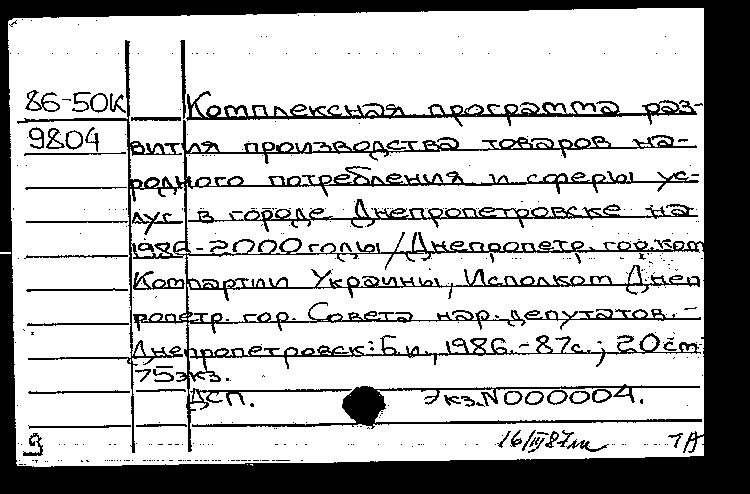 86-50К Комплексная программа раз-
9804 вития производства товаров на-
родного потребления и сферы ус-
луг в городе Днепропетровске на
1986-2000 годы / Днепропетр. гор. ком
Компартии Украины, Исполком Днеп
ропетр. гор. Совета нар. депутатов. -
Днепропетровск: Б.и., 1986. - 87с.; 20 см
75 экз.
ДСП. Экз. N 000004.
9 16/III 87 1А